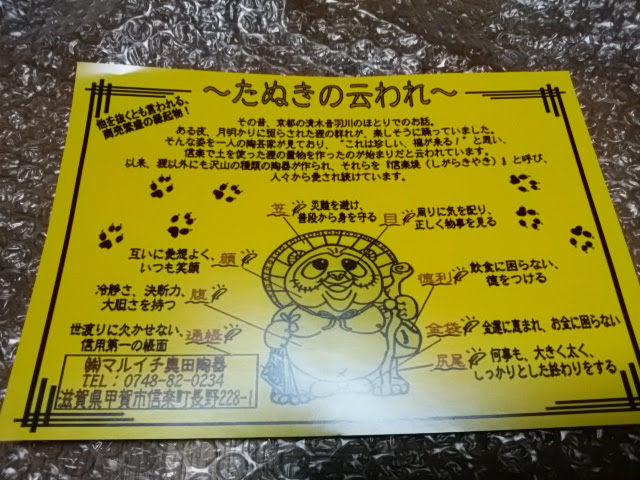 〜たぬきの云われ〜
他を抜くとも言われる、
商売繁盛の縁起物！
その昔、京都の清水音羽川のほとりでのお話。
ある夜、月明かりに照らされた狸の群れが、楽しそうに踊っていました。
そんな姿を一人の陶芸家が見ており、"これは珍しい、福が来る！"と思い、
信楽で土を使った狸の置物を作ったのが始まりだと云われています。
以来、狸以外にも沢山の種類の陶器が作られ、それらを『信楽焼（しがらきやき）』と呼び、
人々から愛され続けています。
笠
災難を避け、
普段から身を守る
目
周りに気を配り、
正しく物事を見る
顔
互いに愛想よく、
いつも笑顔
徳利
飲食に困らない、
徳をつける
腹
冷静さ、決断力、
大胆さを持つ
金袋
金運に恵まれ、お金に困らない
通帳
世渡りに欠かせない、
信用第一の帳面
尻尾
何事も、大きく太く、
しっかりとした終わりをする
㈱マルイチ奥田陶器
TEL：0748-82-0234
滋賀県甲賀市信楽町長野228-1